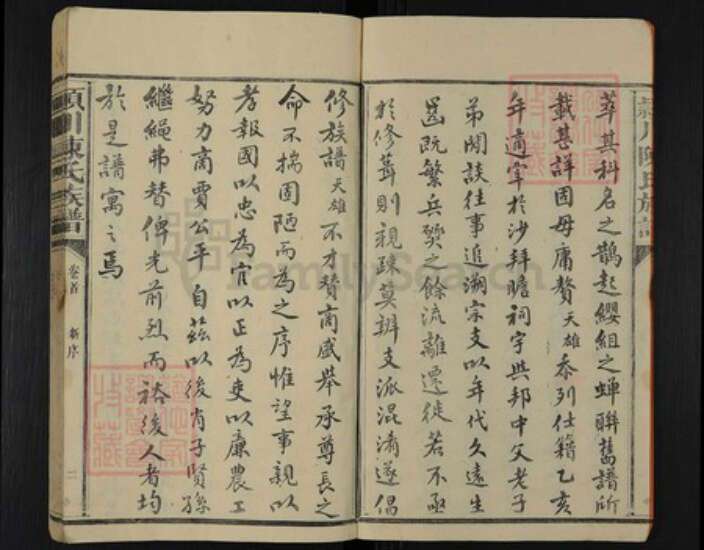 華其科名之鵲起纓組之蟬聯舊譜所
載甚詳固毋庸贅天雄忝列仕籍乙亥
年適宰於沙拜瞻祠宇與邦中父老子
弟閒談往事追溯宗支以年代久遠生
齒既繁兵燹之餘流離遷徙若不亟
於修葺則親疎莫辨支派混淆遂倡
修族譜天雄不才贊商盛舉承尊長之
命不揣固陋而為之序惟望事親以
孝報國以忠為官以正為吏以廉農工
努力商賈公平自茲以後肖子賢孫
繼繩弗替俾光前烈而裕後人者均
於是譜寓之焉
潁川陳氏族譜
卷首
新序
二
潁川陳氏族譜
FamilySearch